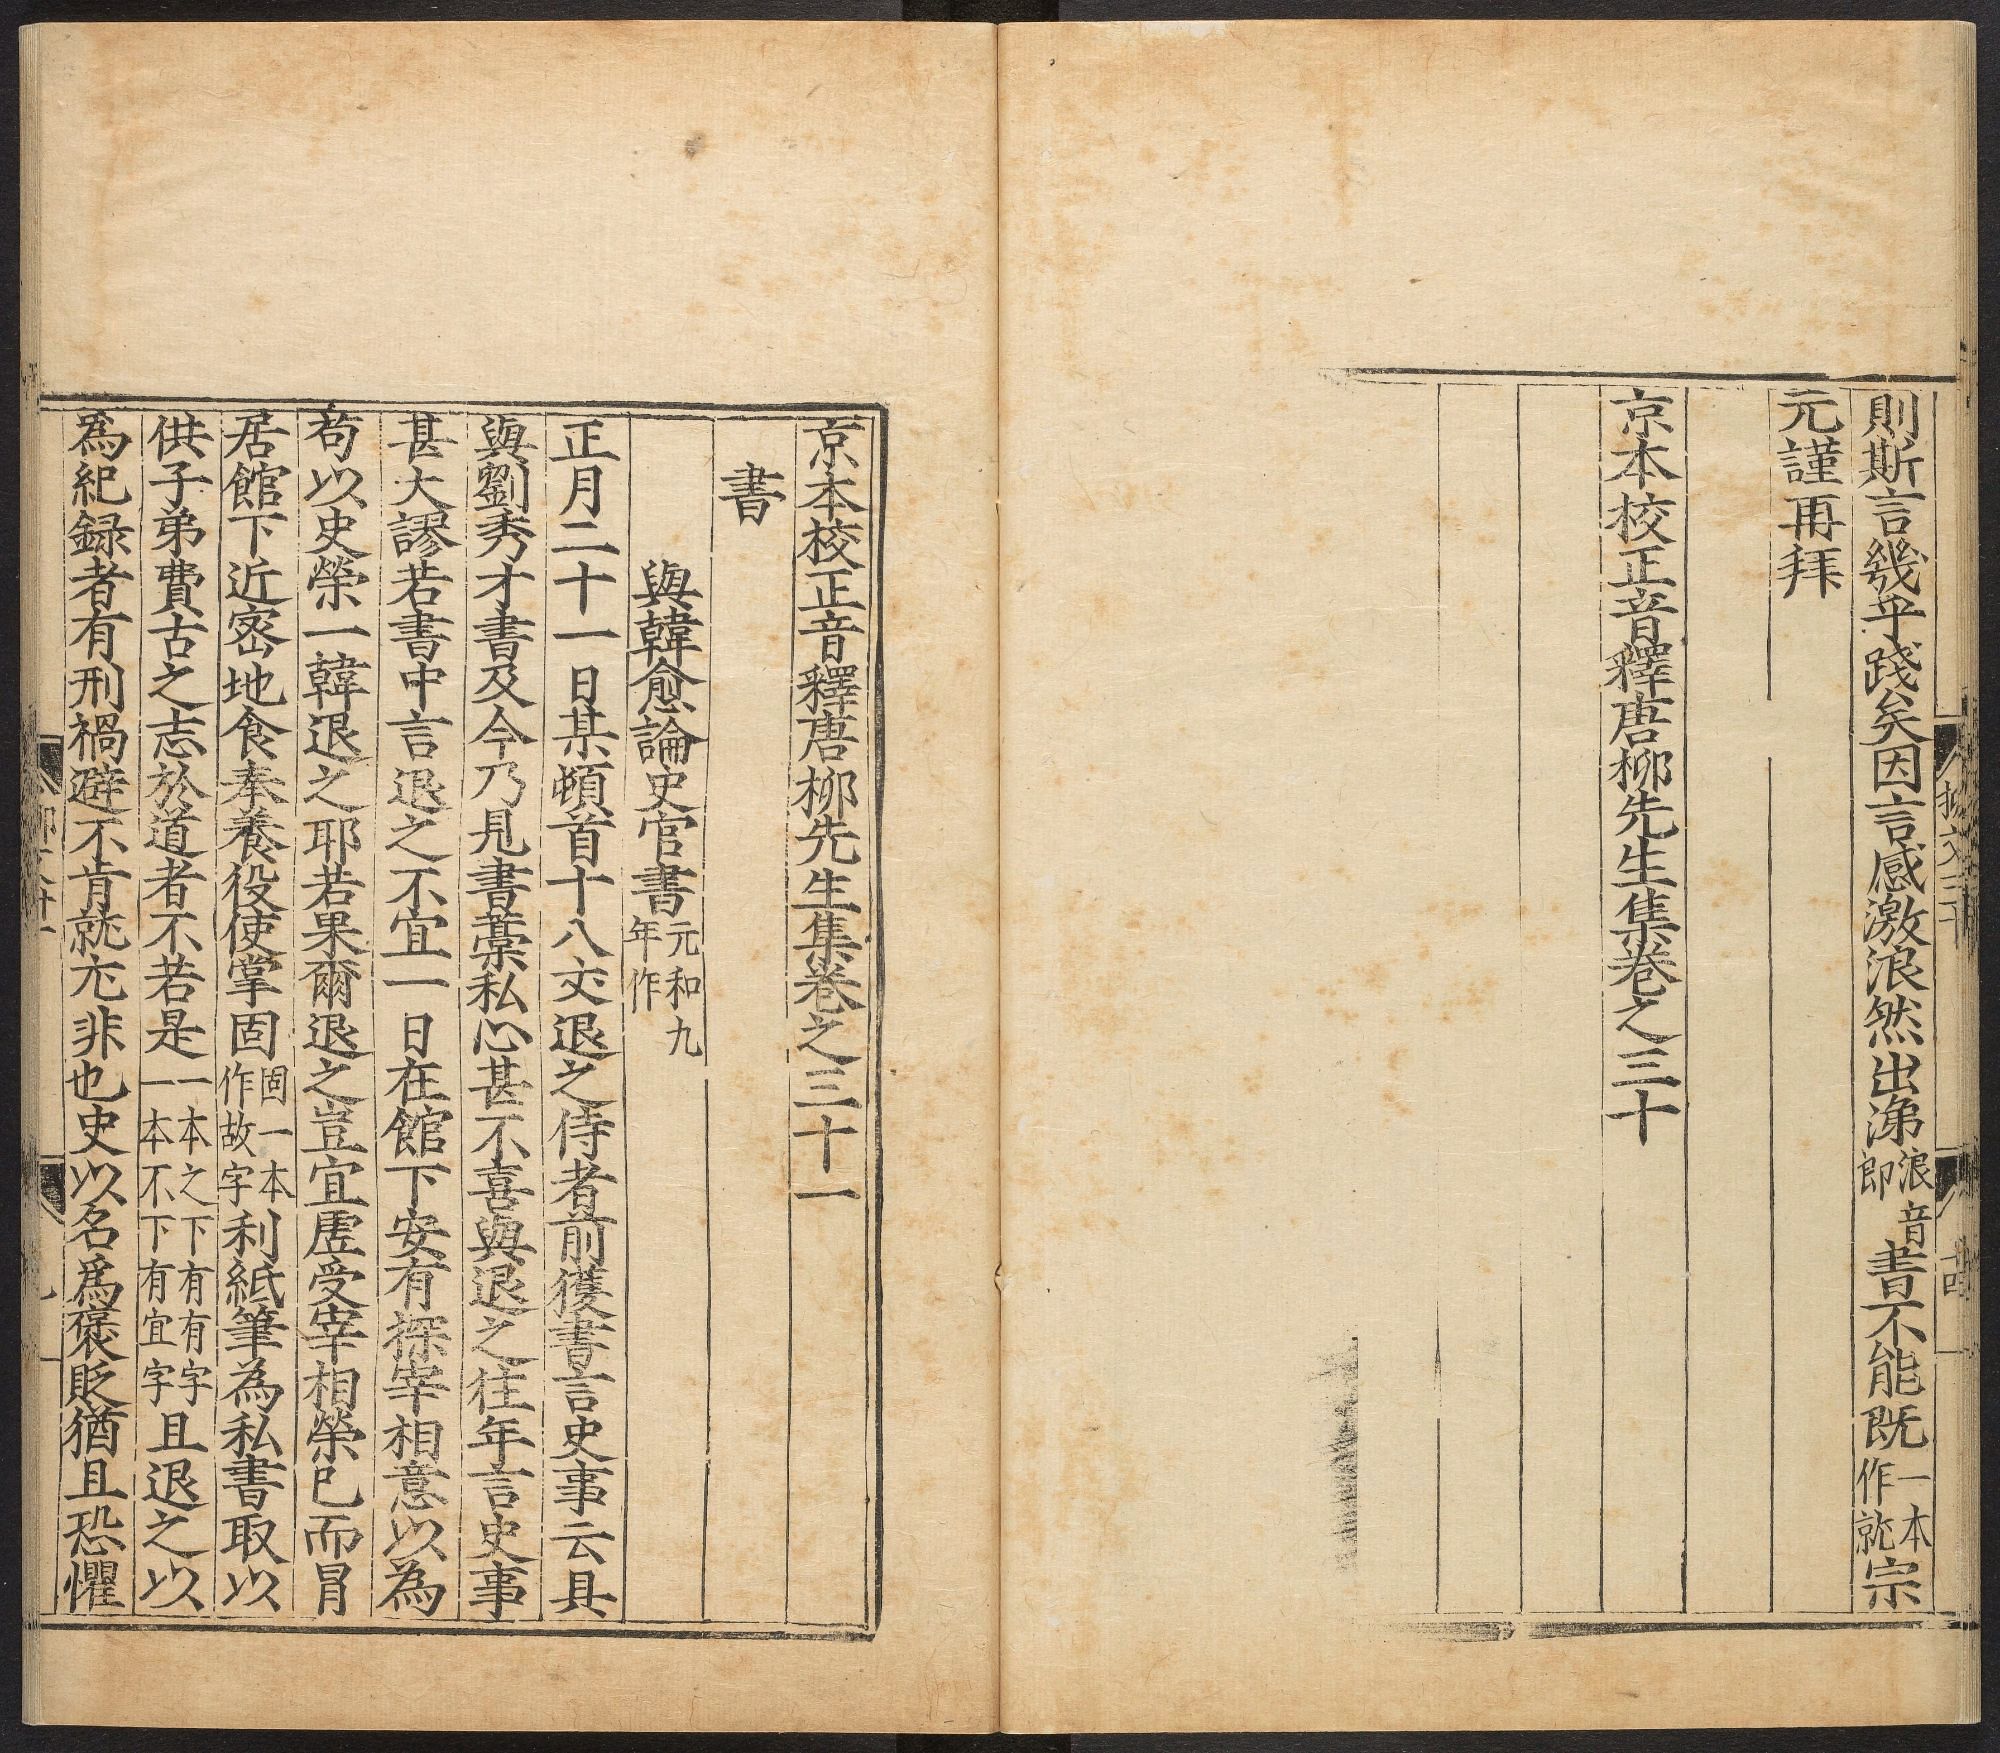 則斯言幾乎踐矣因言感激浪然出涕浪音郎書不能既一本作就宗
元謹再拜
京本校正音釋唐柳先生集卷之三十
京本校正音釋唐柳先生集卷之三十一
書
與韓愈論史官書元和九年作
正月二十一日某頓首十八丈退之侍者前獲書言史事云具
與劉秀才書及今乃見書藁私心甚不喜與退之往年言史事
甚大謬若書中言退之不宜一日在館下安有探宰相意以為
苟以史榮一韓退之耶若果爾退之豈宜虛受宰相榮已而冐
居館下近密地食奉養役使掌固固一本作故字利紙筆為私書取以
供子弟費古之志於道者不若是一本之下有有字一本不下有宜字且退之以
為紀録者有刑禍避不肯就尤非也史以名爲褒貶猶且恐懼